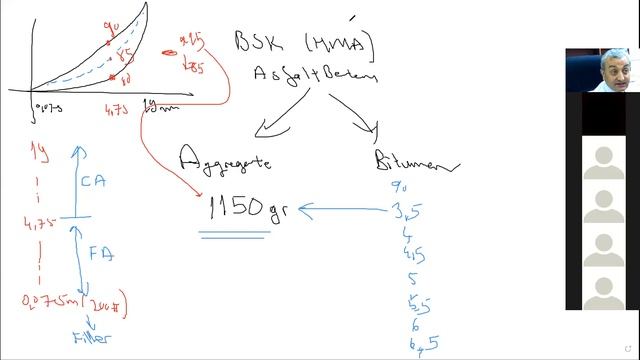 90
85
80
0,075
4,75
19 mm
BSK (HMA)
Asfalt Beton
Aggregate
Bitumen
1150 gr
%
3,5
4
4,5
5
5,5
6
6,5
19
CA
4,75
FA
0,075m (200#)
Filler